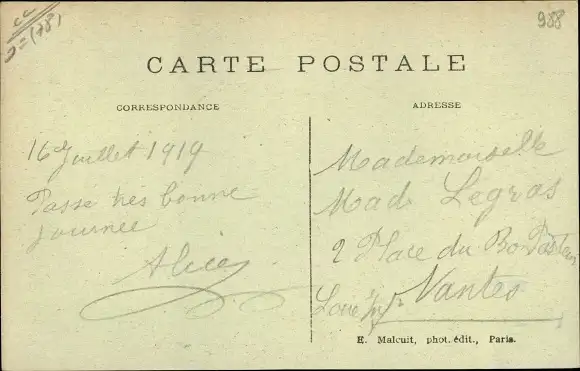 988
CARTE POSTALE
CORRESPONDANCE
ADRESSE
16 Juillet 1919
Passé très bonne
journée
Alice
Mademoiselle
Mad Legras
2 Place du Bon Pasteur
Nantes
Loire Infre
E. Malcuit, phot. édit., Paris.